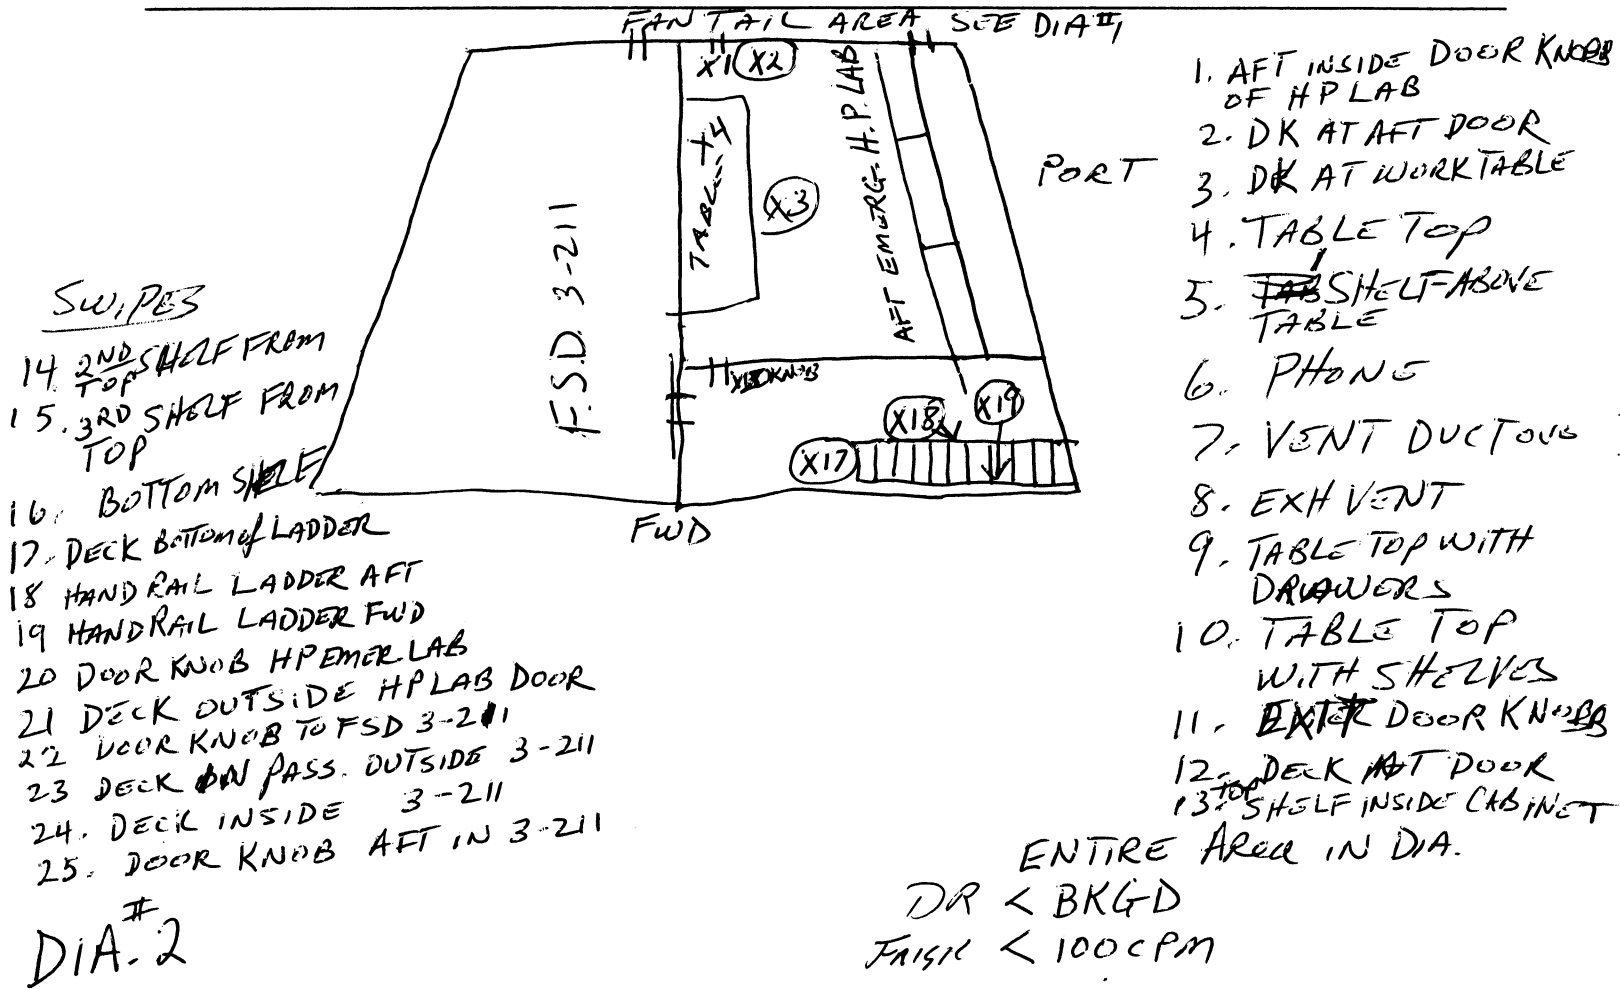 FANTAIL AREA SEE DIA #1
X1 X2
TABLE X4
X3
AFT EMERG. H.P. LAB
F.S.D. 3-211
PORT
KNOB
X18
X19
X17
FWD
1. AFT INSIDE DOOR KNOB
OF HP LAB
2. DK AT AFT DOOR
3. DK AT WORKTABLE
4. TABLE TOP
5. SHELF ABOVE
TABLE
6. PHONE
7. VENT DUCT
8. EXH VENT
9. TABLE TOP WITH
DRAWERS
10. TABLE TOP
WITH SHELVES
11. DOOR KNOB
12. DECK AT DOOR
13. TOP SHELF INSIDE CABINET
SWIPES
14 2ND SHELF FROM
TOP
15. 3RD SHELF FROM
TOP
16. BOTTOM SHELF
17. DECK BOTTOM of LADDER
18 HANDRAIL LADDER AFT
19 HANDRAIL LADDER FWD
20 DOOR KNOB HP EMER. LAB
21 DECK OUTSIDE HP LAB DOOR
22 DOOR KNOB TO FSD 3-211
23 DECK IN PASS. OUTSIDE 3-211
24. DECK INSIDE 3-211
25. DOOR KNOB AFT IN 3-211
ENTIRE AREA IN DIA.
DR < BKGD
FRISK < 100 CPM
DIA. #2